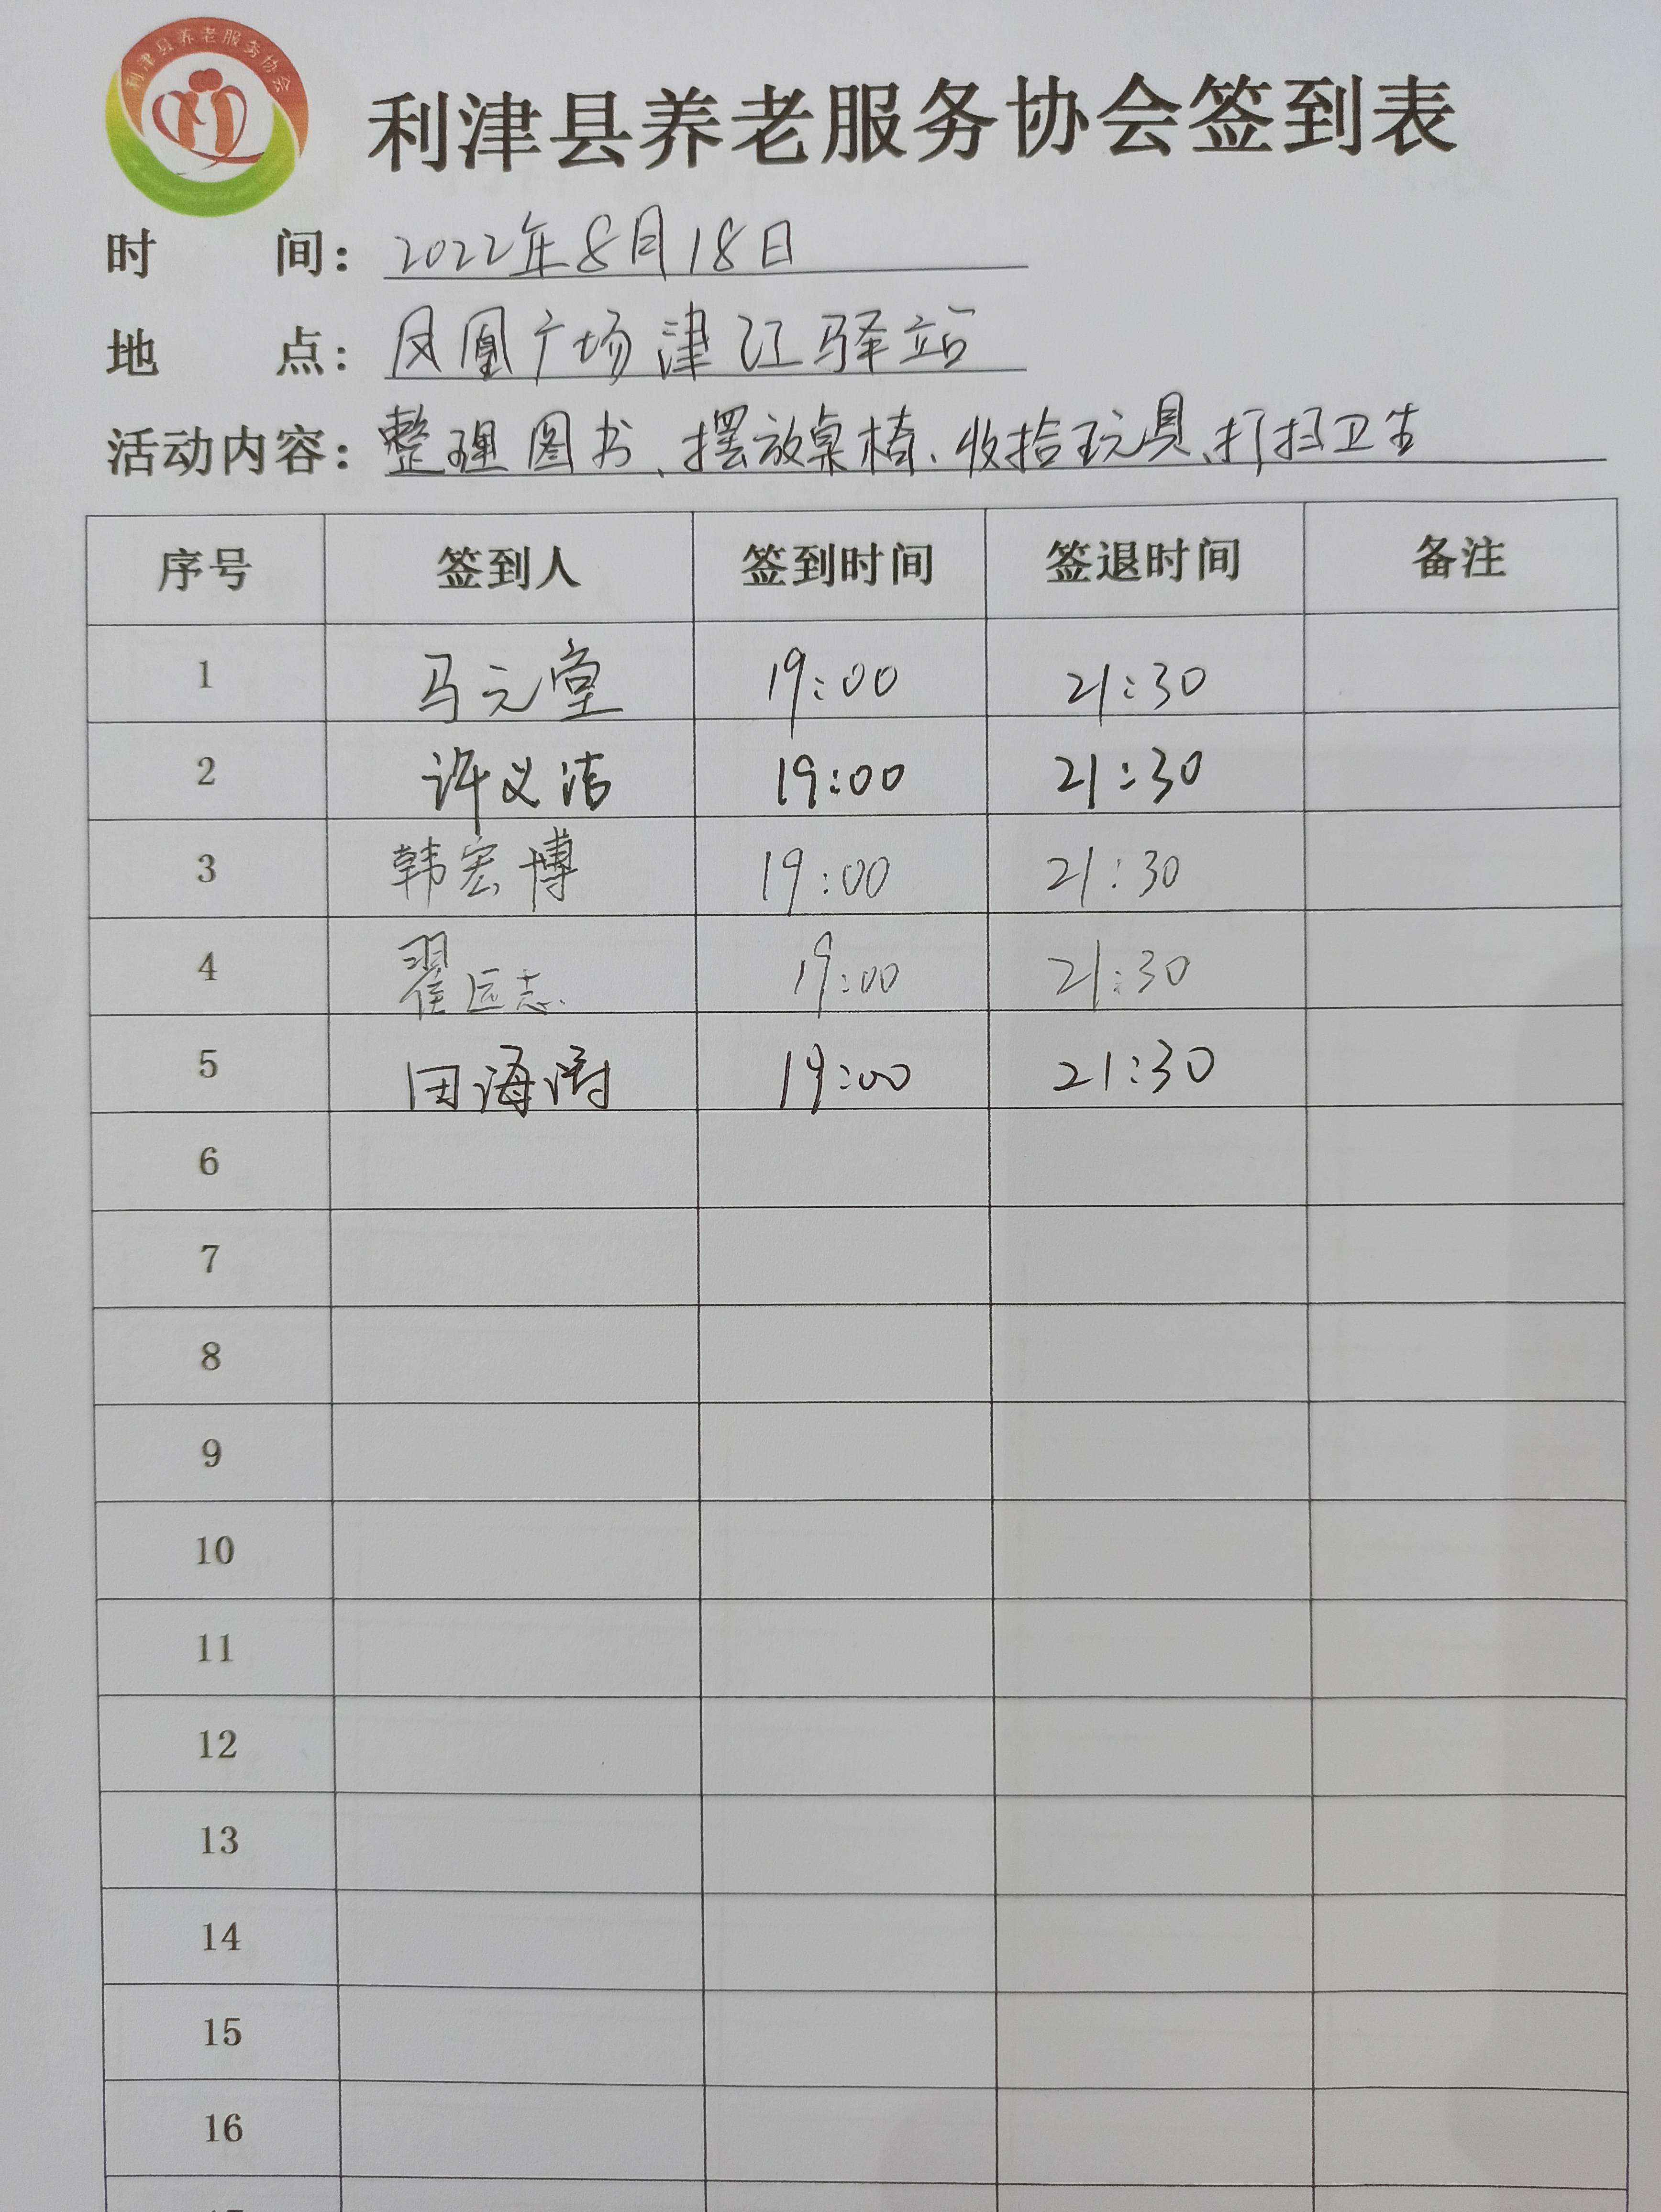 利津县养老服务协会
利津县养老服务协会签到表
时 间：2022年8月18日
地 点：凤凰广场津江驿站
活动内容：整理图书、摆放桌椅、收拾玩具、打扫卫生
序号 签到人 签到时间 签退时间 备注
1 马元堂 19:00 21:30
2 许义洁 19:00 21:30
3 韩宏博 19:00 21:30
4 翟远志 19:00 21:30
5 田海涛 19:00 21:30
6
7
8
9
10
11
12
13
14
15
16